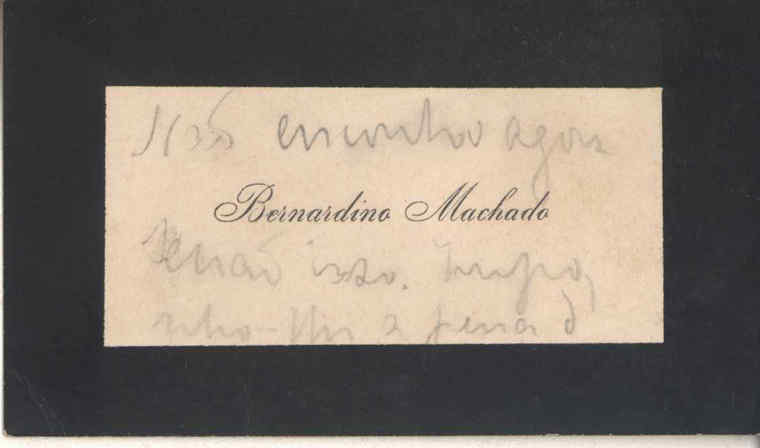 Não encontro agora
Bernardino Machado
senão isso.
a pena d